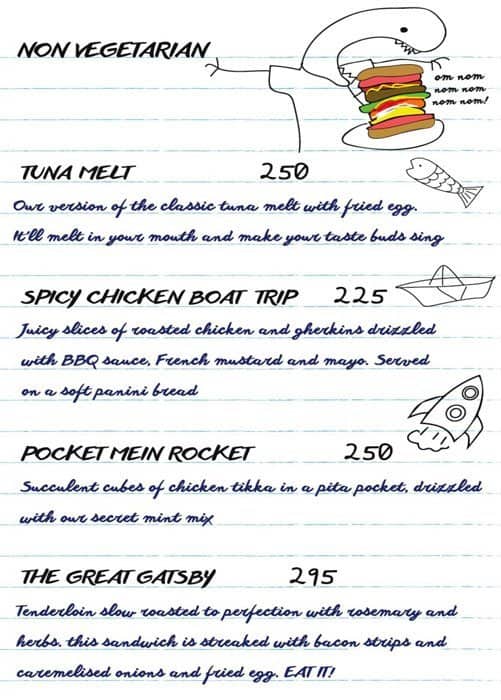 NON VEGETARIAN
om nom
nom nom
nom nom!
TUNA MELT 250
Our version of the classic tuna melt with fried egg.
It'll melt in your mouth and make your taste buds sing
SPICY CHICKEN BOAT TRIP 225
Juicy slices of roasted chicken and gherkins drizzled
with BBQ sauce, French mustard and mayo. Served
on a soft panini bread
POCKET MEIN ROCKET 250
Succulent cubes of chicken tikka in a pita pocket, drizzled
with our secret mint mix
THE GREAT GATSBY 295
Tenderloin slow roasted to perfection with rosemary and
herbs. this sandwich is streaked with bacon strips and
caremelised onions and fried egg. EAT IT!